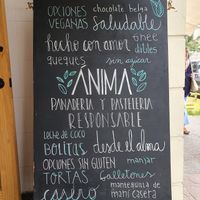 OPCIONES chocolate belga
VEGANAS saludable
hecho con amor
queques sin azúcar
ÁNIMA
PANADERÍA Y PASTELERÍA
RESPONSABLE
LECHE DE COCO
BOLITAS desde el alma
OPCIONES SIN GLUTEN manjar
TORTAS Galletones
casero mantequilla de
maní casera